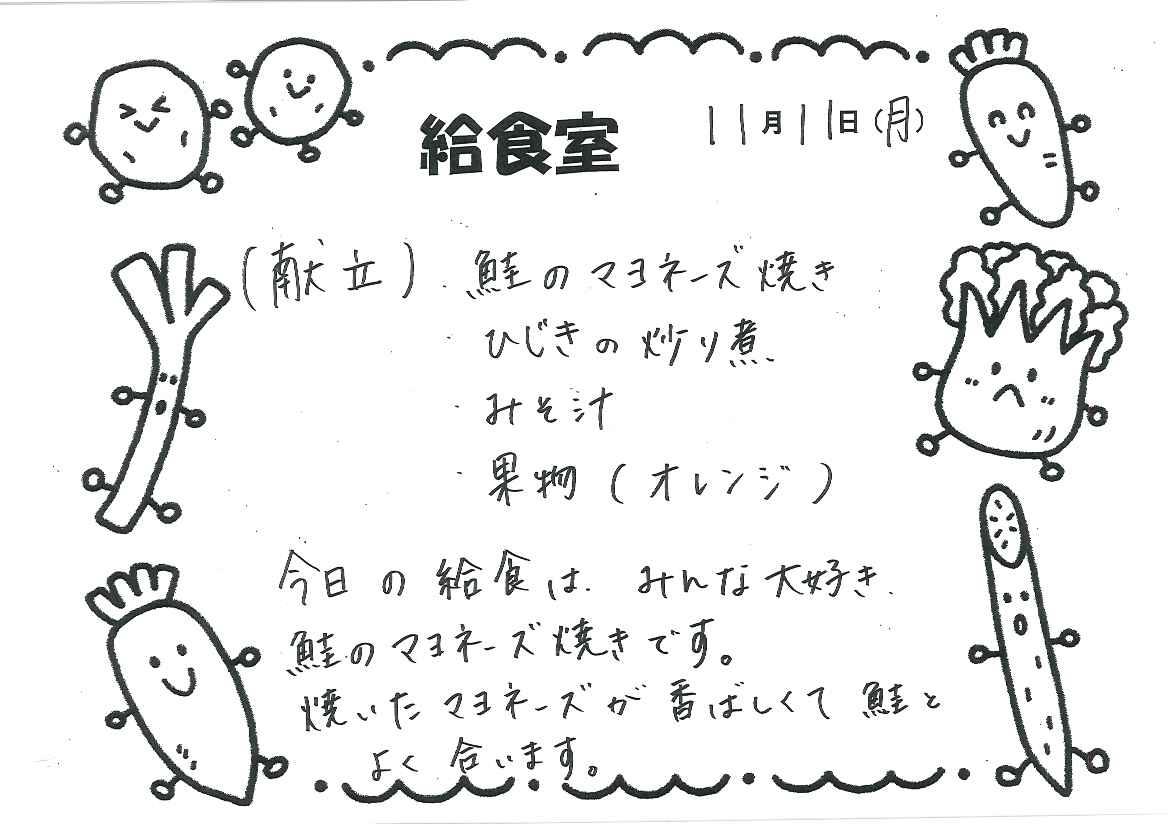 給食室 11月11日(月)
(献立)・鮭のマヨネーズ焼き
・ひじきの炒り煮
・みそ汁
・果物(オレンジ)
今日の給食は、みんな大好き、
鮭のマヨネーズ焼きです。
焼いたマヨネーズが香ばしくて鮭と
よく合います。